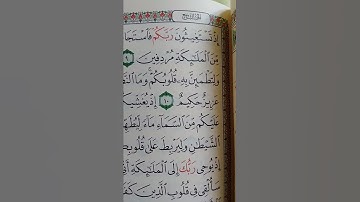 إِذْ تَسْتَغِيثُونَ رَبَّكُمْ فَاسْتَجَا
مِنَ الْمَلَائِكَةِ مُرْدِفِينَ ٩
وَلِتَطْمَئِنَّ بِهِ قُلُوبُكُمْ وَمَا النَّ
عَزِيزٌ حَكِيمٌ ١٠ إِذْ يُغَشِّيكُ
عَلَيْكُمْ مِنَ السَّمَاءِ مَاءً لِيُطَهِّ
الشَّيْطَانِ وَلِيَرْبِطَ عَلَى قُلُوبِ
إِذْ يُوحِي رَبُّكَ إِلَى الْمَلَائِكَةِ أَ
سَأُلْقِي فِي قُلُوبِ الَّذِينَ كَفَ